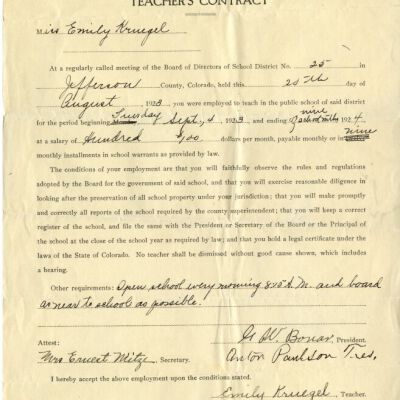 TEACHER'S CONTRACT
Miss Emily Kruegel
At a regularly called meeting of the Board of Directors of School District No. 25 in
Jefferson County, Colorado, held this 25th day of
August 1923, you were employed to teach in the public school of said district
for the period beginning Tuesday Sept. 4 1923, and ending nine school months 1924
at a salary of Hundred dollars per month, payable monthly or in nine
monthly installments in school warrants as provided by law.
The conditions of your employment are that you will faithfully observe the rules and regulations
adopted by the Board for the government of said school, and that you will exercise reasonable diligence in
looking after the preservation of all school property under your jurisdiction; that you will make promptly
and correctly all reports of the school required by the county superintendent; that you will keep a correct
register of the school, and file the same with the President or Secretary of the Board or the Principal of
the school at the close of the school year as required by law; and that you hold a legal certificate under the
laws of the State of Colorado. No teacher shall be dismissed without good cause shown, which includes
a hearing.
Other requirements: Open school every morning 8:45 A.M. and board
as near to school as possible.
G. W. Bonar, President.
Attest: Anton Paulson Tres.
Mrs Ernest Mitze, Secretary.
I hereby accept the above employment upon the conditions stated.
Emily Kruegel, Teacher.